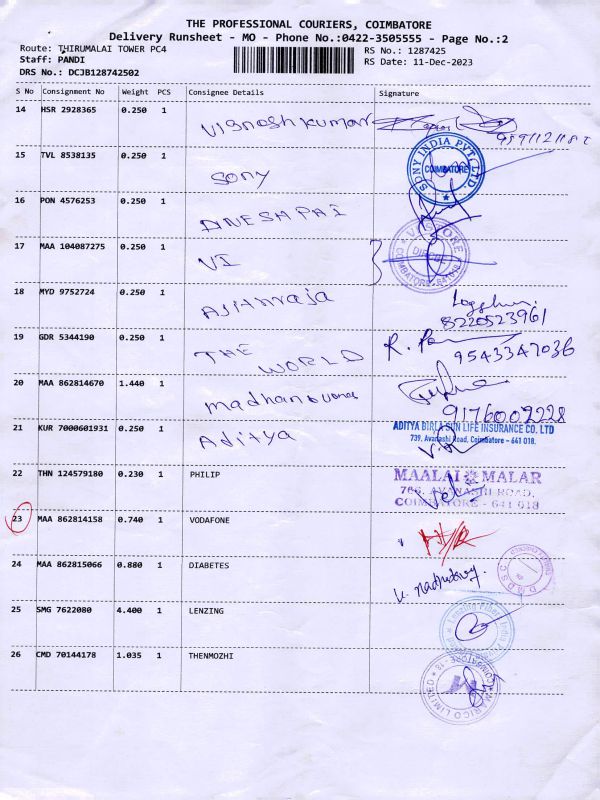 THE PROFESSIONAL COURIERS, COIMBATORE
Delivery Runsheet - MO - Phone No.:0422-3505555 - Page No.:2
Route: THIRUMALAI TOWER PC4
RS No.: 1287425
Staff: PANDI
RS Date: 11-Dec-2023
DRS No.: DCJB128742502
S No Consignment No Weight PCS Consignee Details Signature
14 HSR 2928365 0.250 1 Vignesh kumar
15 TVL 8538135 0.250 1 SONY
SONY INDIA PVT LTD
COIMBATORE
16 PON 4576253 0.250 1 DNESH PAI
17 MAA 104087275 0.250 1 VI
18 MYD 9752724 0.250 1 Ajithraja
8220523961
19 GDR 5344190 0.250 1 THE WORLD R.
9543347036
20 MAA 862814670 1.440 1
9176007228
21 KUR 7000601931 0.250 1 Aditya
ADITYA BIRLA SUN LIFE INSURANCE CO. LTD
739, Avanashi Road, Coimbatore - 641 018.
22 THN 124579180 0.230 1 PHILIP
MAALAI MALAR
766, AVANASHI ROAD,
COIMBATORE - 641 018
23 MAA 862814158 0.740 1 VODAFONE
24 MAA 862815066 0.880 1 DIABETES
25 SMG 7622080 4.400 1 LENZING
26 CMD 70144178 1.035 1 THENMOZHI
MARICO LIMITED